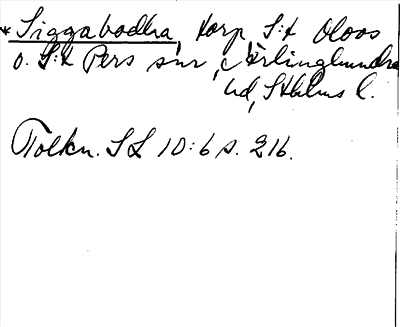 * Siggaboda, torp, S:t Olovs
o. S:t Pers snr, Ärlinghundra
hd, Sthlms l.
Tolkn. SL 10:6 s. 216.